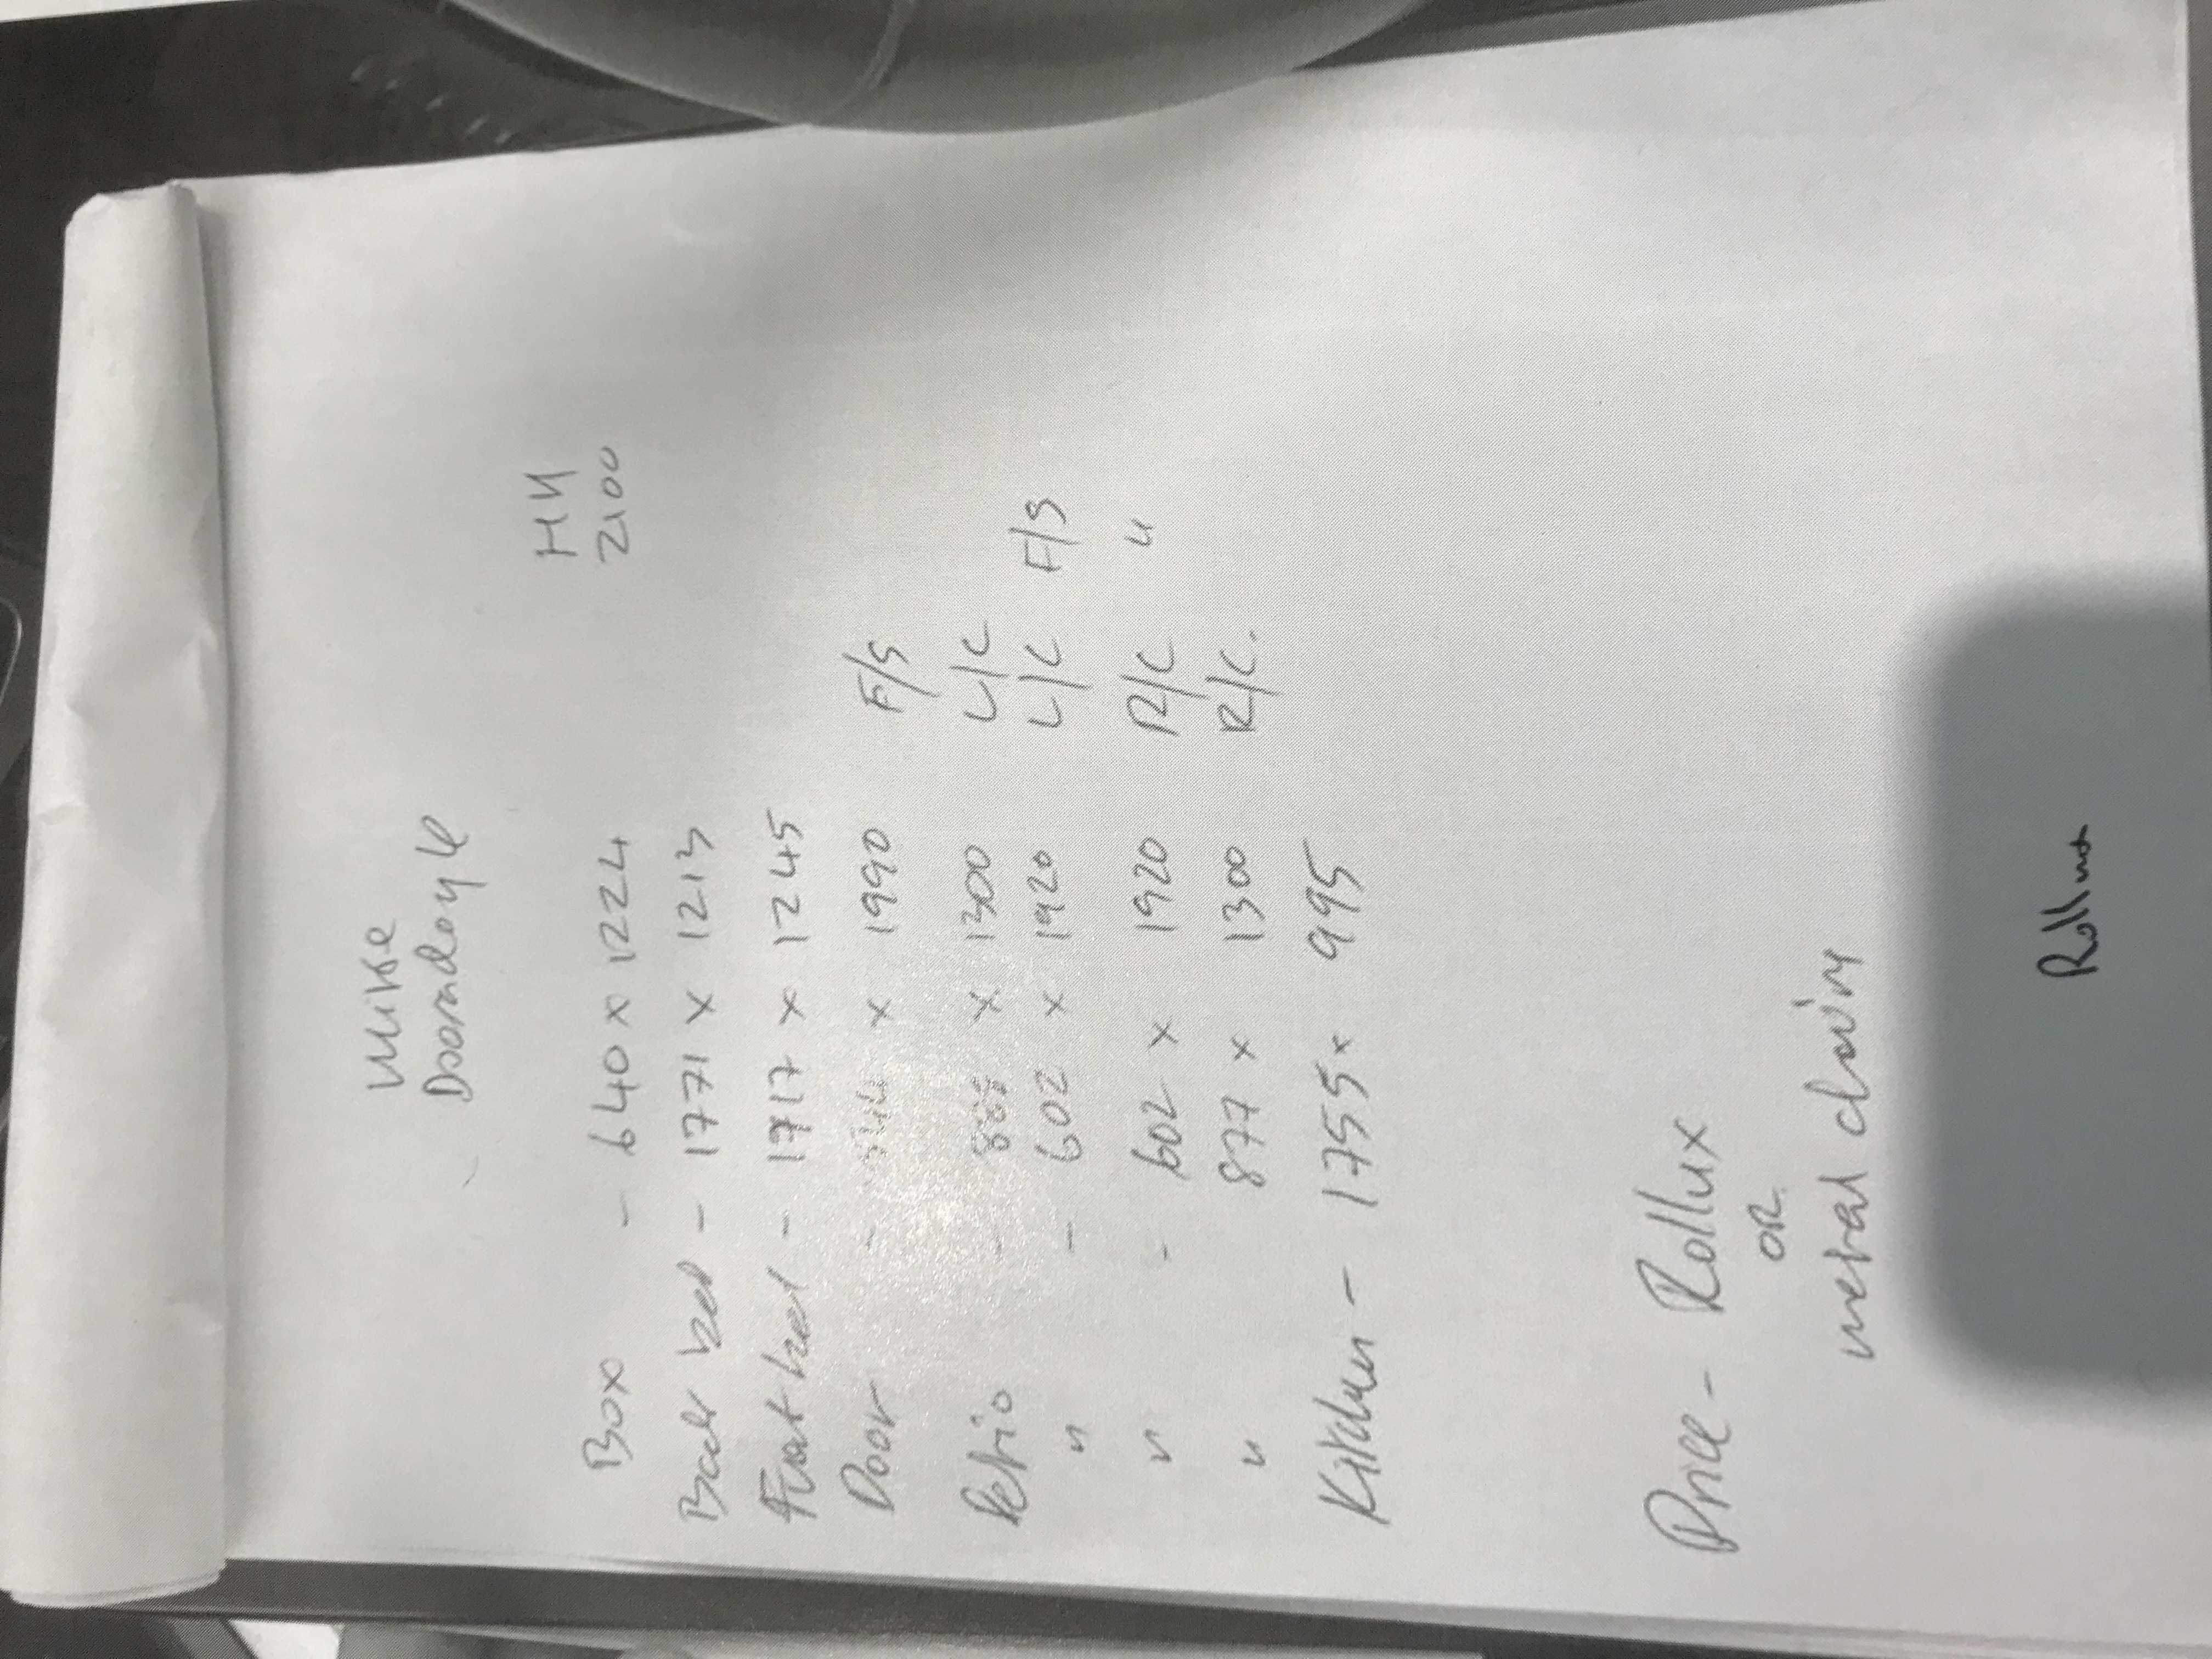 Mike
Dooradoyle
HH
2100
Box - 640 x 1224
Back bed - 1771 x 1213
Front bed - 1717 x 1245
Door - x 1990 F/S
Patio - x 1300 L/C
" - 602 x 1920 L/C F/S
" - 602 x 1920 R/C "
" 877 x 1300 R/C.
Kitchen - 1755 x 995
Price - Rollux
OR
metal chain